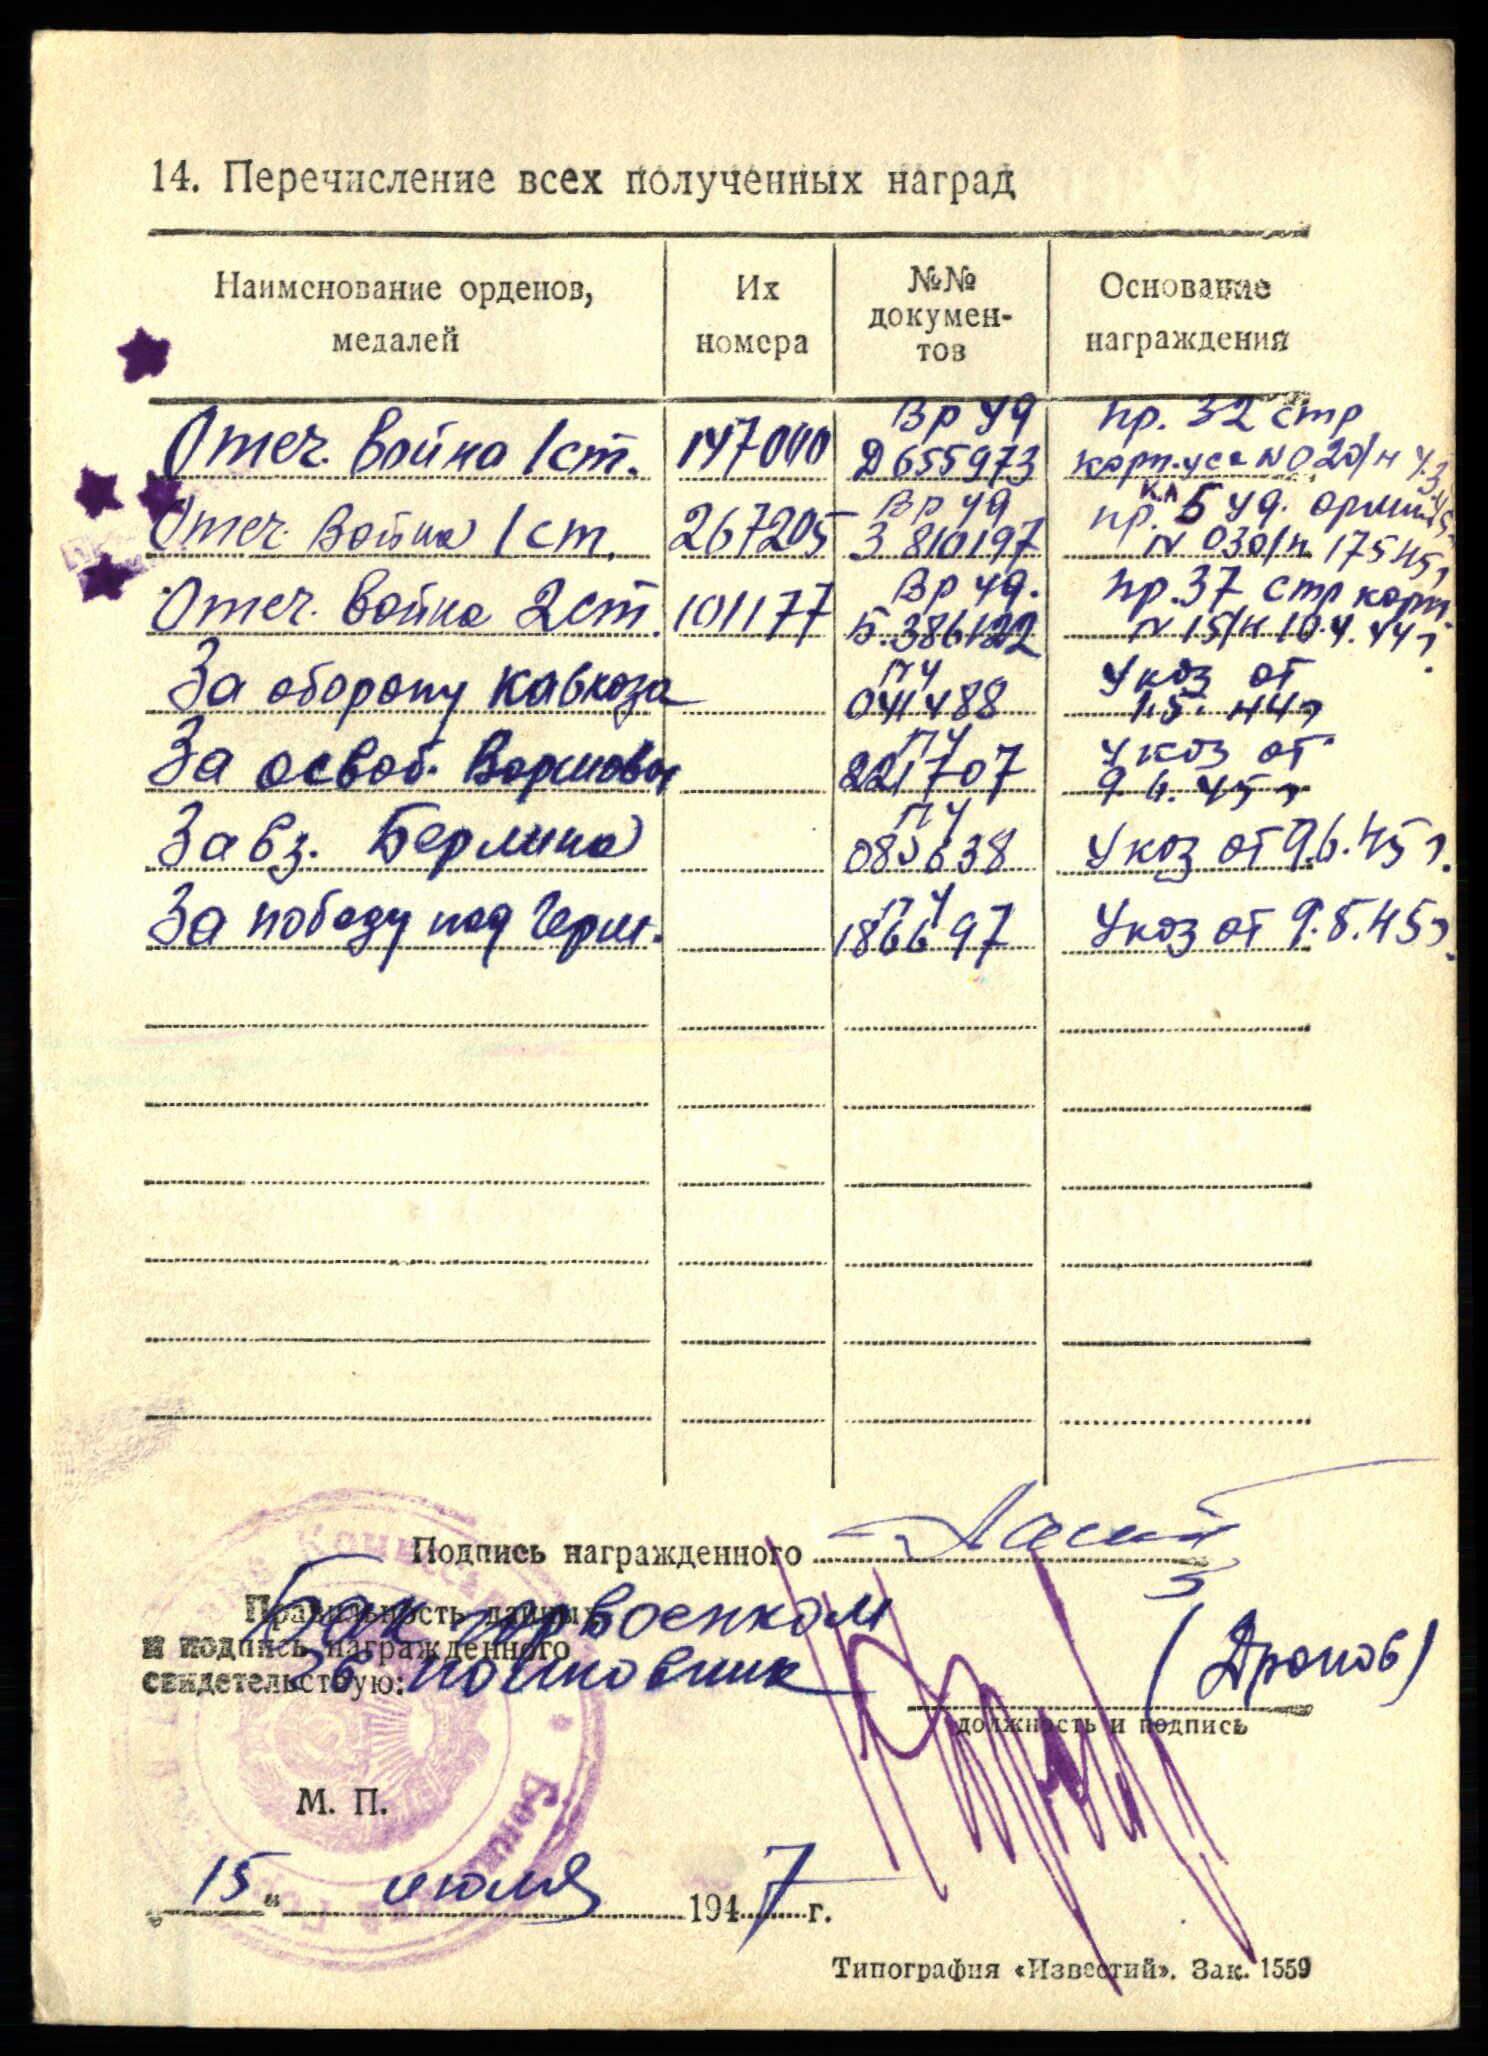 14. Перечисление всех полученных наград
Наименование орденов, медалей
Их номера
№№ документов
Основание награждения
Отеч. война 1 ст. 147000 Вр уд Д 655973 пр. 32 стр корпуса N 020/н
Отеч. война 1 ст. 267205 Вр уд З 810197 пр. 5 уд. армии N 030/н 17 5 45г
Отеч. война 2 ст. 101177 Вр уд. Б.386122 пр. 37 стр корп. N 15/н 10.4.44г.
За оборону Кавказа ПУ 041488 Указ от 1.5.44г
За освоб. Варшавы ПУ 221707 Указ от 9.6.45г
За вз. Берлина ПУ 085638 Указ от 9.6.45г.
За победу над Герм. ПУ 186697 Указ от 9.5.45г.
Подпись награжденного
Правильность данных
и подпись награжденного
свидетельствую:
Бак горвоенком
полковник
(Дронов)
должность и подпись
М. П.
„15" июля 1947 г.
Типография «Известий». Зак. 1559